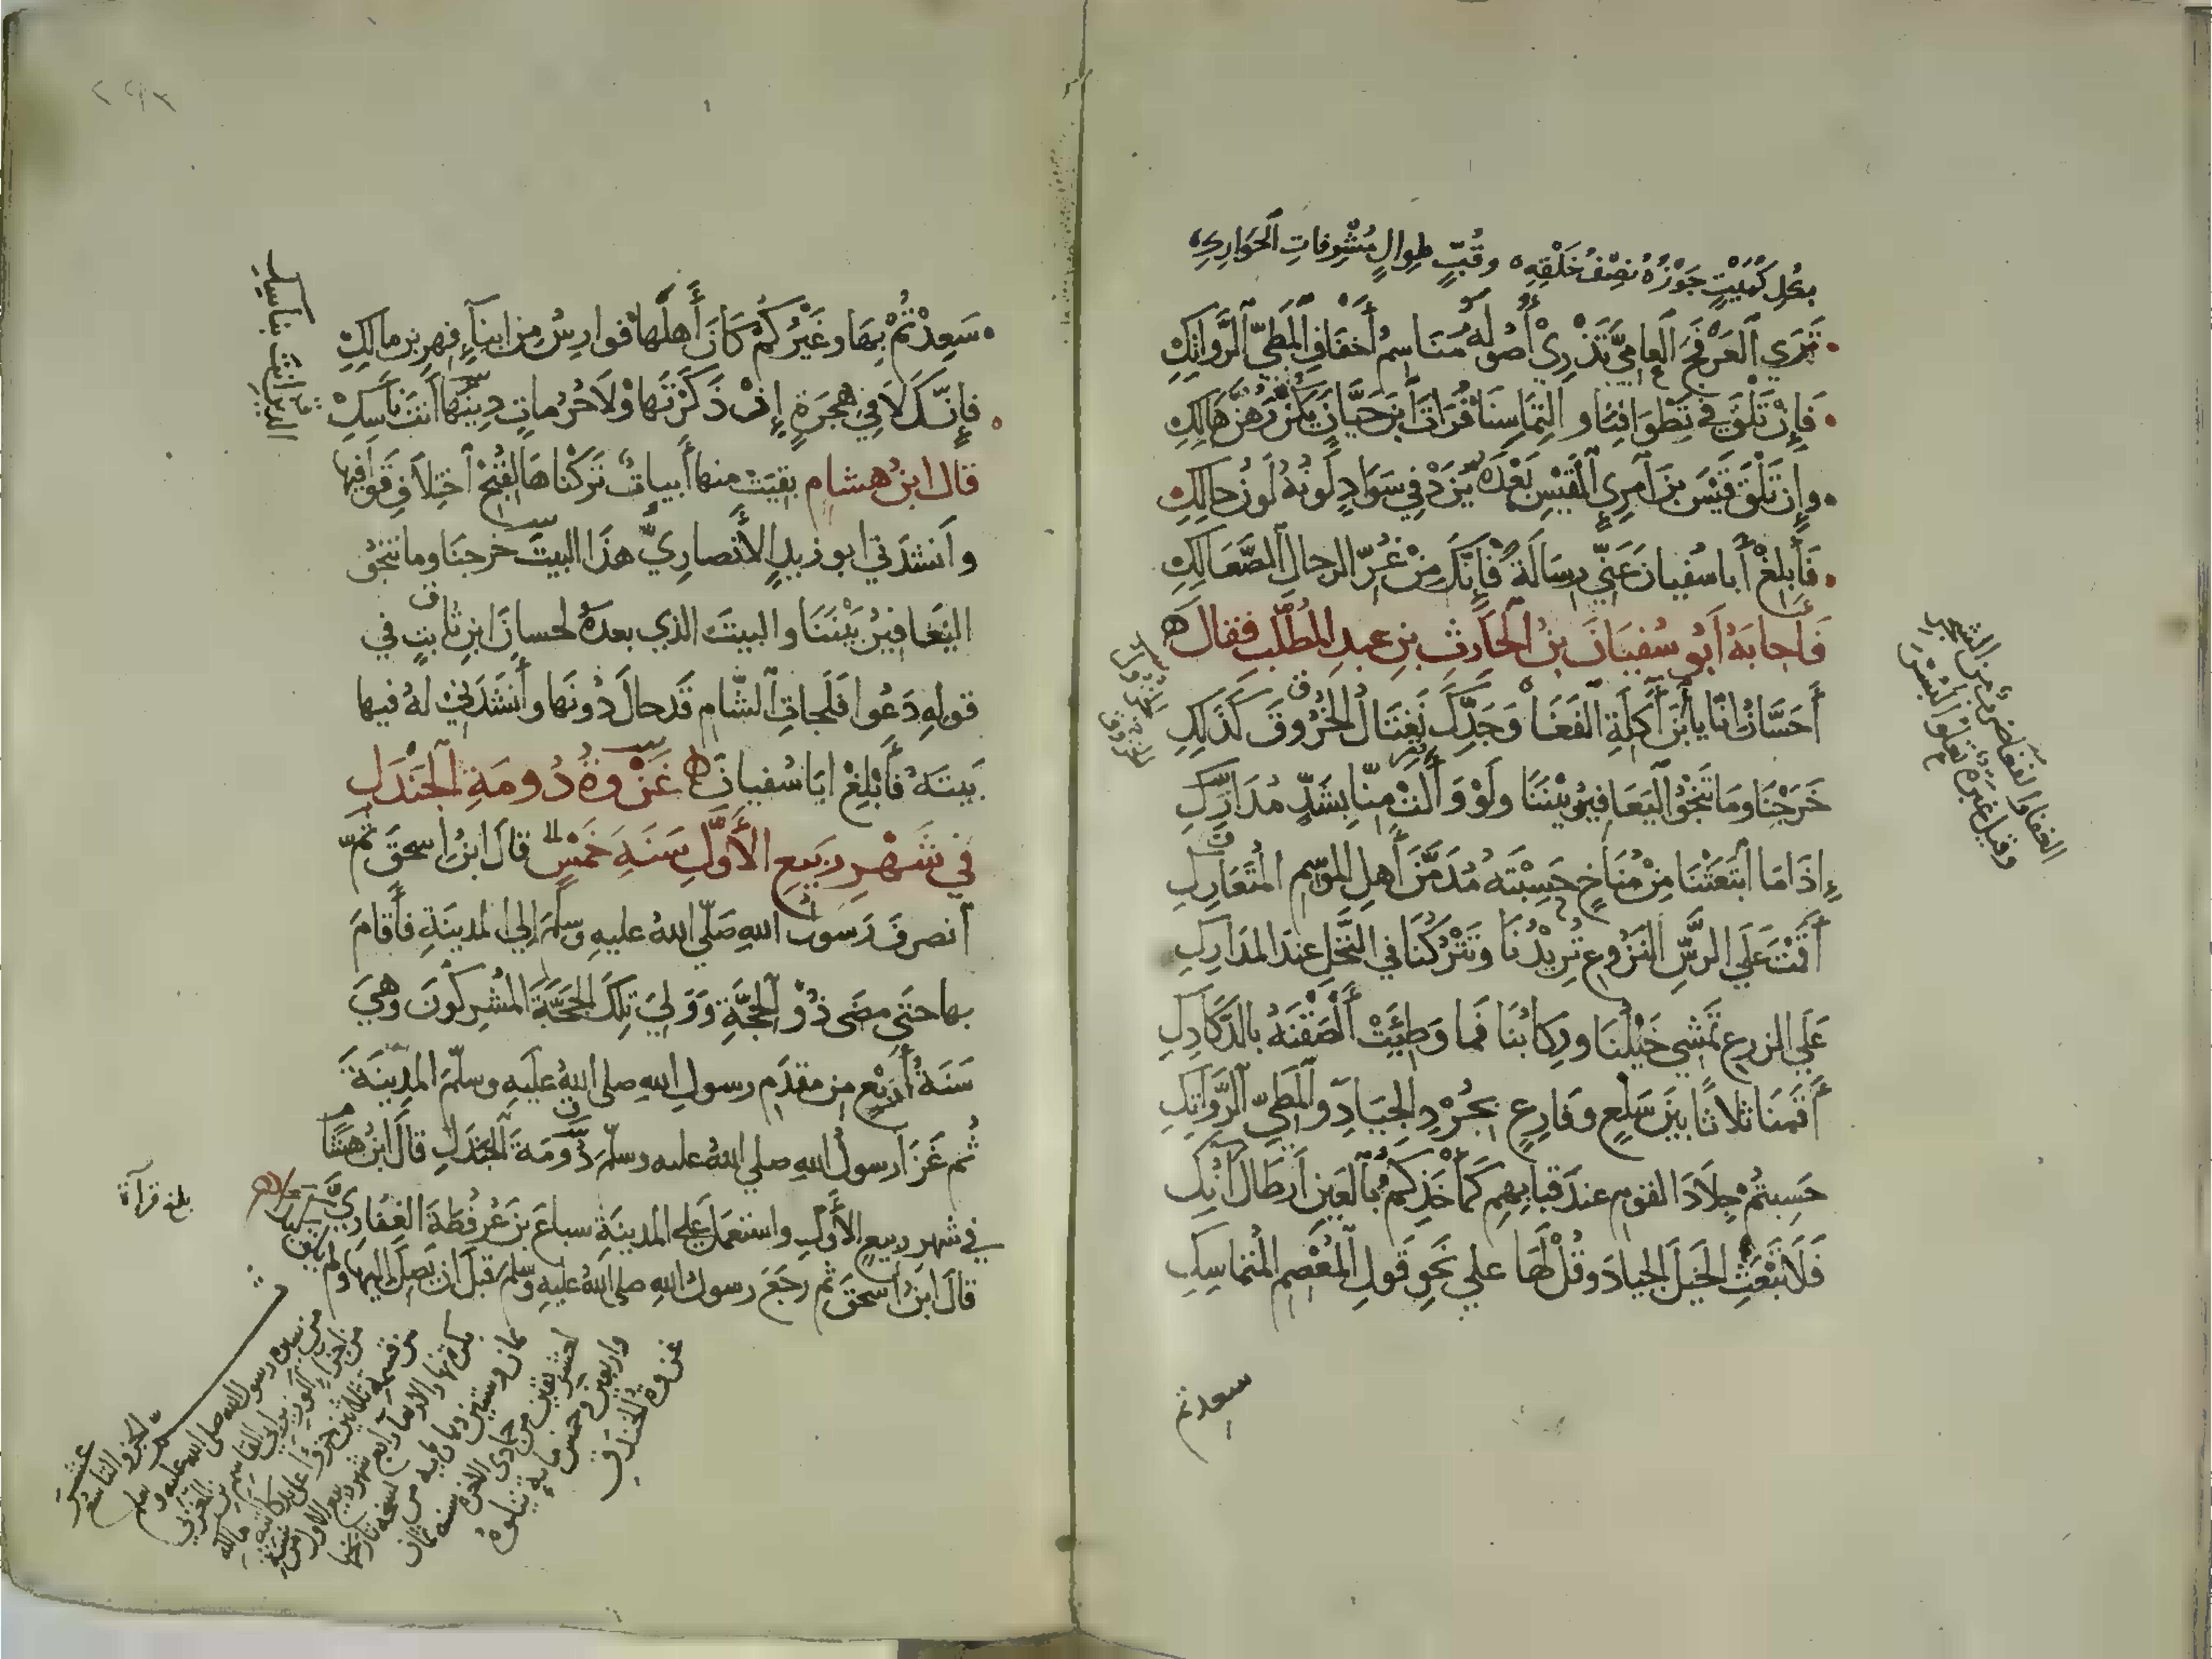 بكل كميت جوزه نصف خلقه وقب طوال مشرفات الحوارك
تري العرفج العامي تذري أصوله مناسم أخفاف المطي الرواتك
فإن نلق في تطوافنا والتماسنا فرات بن حيان يكن رهن هالك
وإن نلق قيس بن امرئ القيس بعده يزد في سواد لونه لون حالك
فأبلغ أبا سفيان عني رسالة فإنك من غر الرجال الصعالك
فأجابه أبو سفيان بن الحارث بن عبد المطلب فقال
أحسان انا يا بن آكلة الفغا وجدك نغتال الخروق كذلك
خرجنا وما تنجو اليعافير بيننا ولو وألت منا بشد مدارك
إذا ما انبعثنا من مناخ حسبته مدمن أهل الموسم المتعارك
أقمت علي الرس النزوع تريدنا وتتركنا في النخل عند المدارك
علي الزرع تمشي خيلنا وركابنا فما وطئت ألصقنه بالدكادك
أقمنا ثلاثا بين سلع وفارع بجرد الجياد والمطي الرواتك
حسبتم جلاد القوم عند قبابهم كمأخذكم بالعين أرطال آنك
فلا تبعث الخيل الجياد وقل لها علي نحو قول المعصم المتماسك
سعدتم
الفغا والفغاضرب من الشجر
وقيل غبرة تعلوا البسر
سعدتم بها وغيركم كان أهلها فوارس من ابناء فهر بن مالك
فإنك لا في هجرة إن ذكرتها ولا حرمات دينها انت ناسك
قال ابن هشام بقيت منها أبيات تركناها لقبح اختلاف قوافيها
وأنشدني ابو زيد الأنصاري هذا البيت خرجنا وما تنجو
اليعافير بيننا والبيت الذي بعده لحسان ابن ثابت في
قوله دعوا فلجات الشام قد حال دونها وأنشدني له فيها
بيته فأبلغ ابا سفيان غزوة دومة الجندل
في شهر ربيع الأول سنة خمس قال ابن اسحق ثم
انصرف رسول الله صلي الله عليه وسلم إلي المدينة فأقام
بها حتي مضي ذو الحجة وولي تلك الحجة المشركون وهي
سنة أربع من مقدم رسول الله صلي الله عليه وسلم المدينة
ثم غزا رسول الله صلي الله عليه وسلم دومة الجندل قال ابن هشام
في شهر ربيع الأول واستعمل علي المدينة سباع بن عرفطة الغفاري
قال ابن اسحق ثم رجع رسول الله صلي الله عليه وسلم قبل ان يصل اليها ولم يلق كيدا
بلغ قراءة
الجزو التاسع عشر
من سيرة رسول الله صلي الله عليه وسلم
من اجزاء الوزير ابي القاسم بن المغربي
من قسمة ثلاثين جزؤا علي يد كاتبه مالكه
رابع شهر ربيع الاول من سنة
ثمان وستين وثمان مايه من نسخة تاريخها
لعشر بقين من جمادي الاخرة سنة ثمان
واربعين وخمس ماية يتلوه
غزوة الخندق